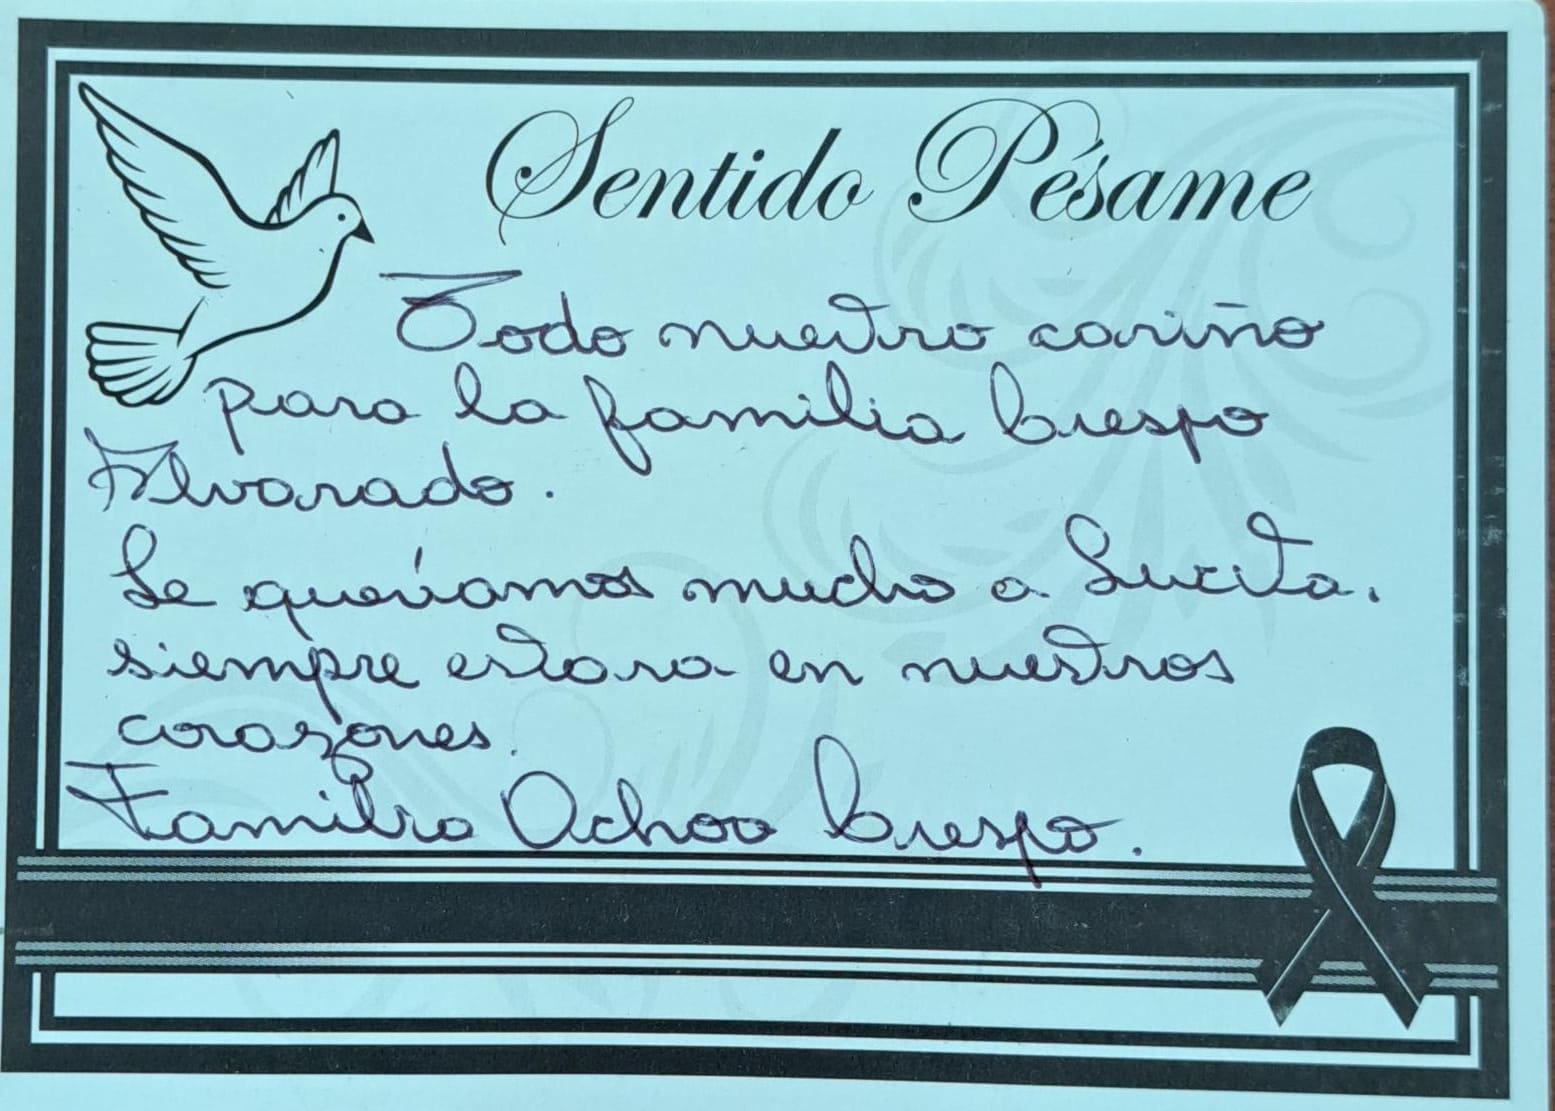 Sentido Pésame
Todo nuestro cariño
para la familia Crespo
Alvarado.
Le queríamos mucho a Lucita.
siempre estara en nuestros
corazones.
Familia Ochoa Crespo.